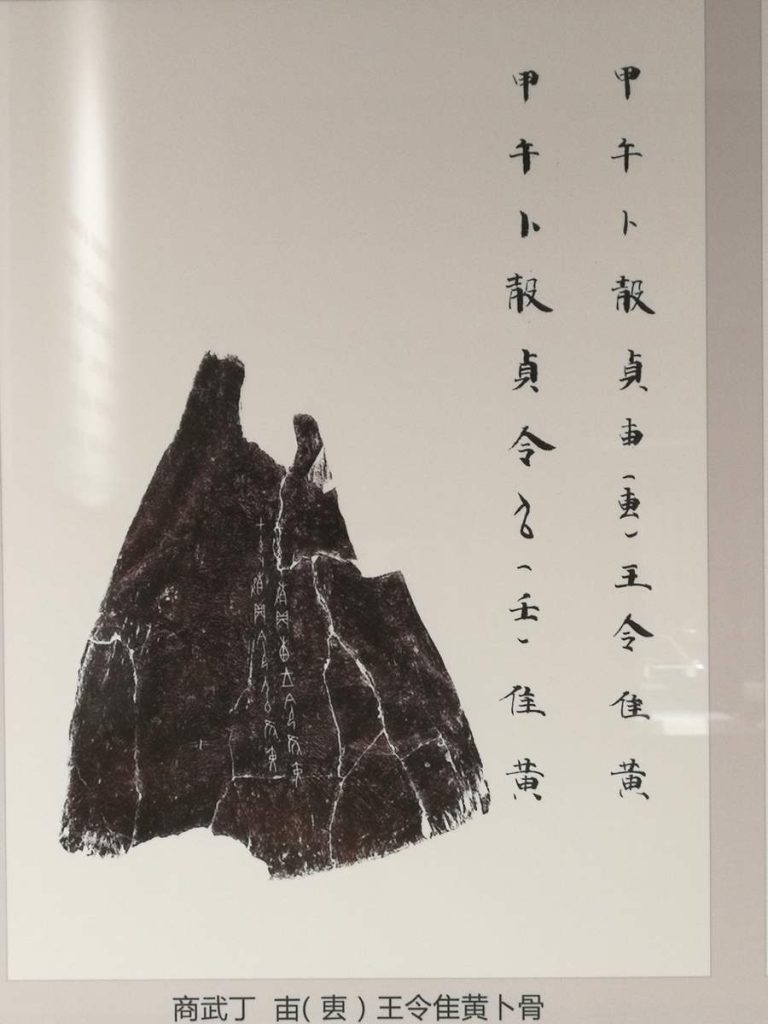 甲午卜㱿貞甴(叀)王令隹黄
甲午卜㱿貞令(壬)隹黄
商武丁 甴(叀)王令隹黄卜骨